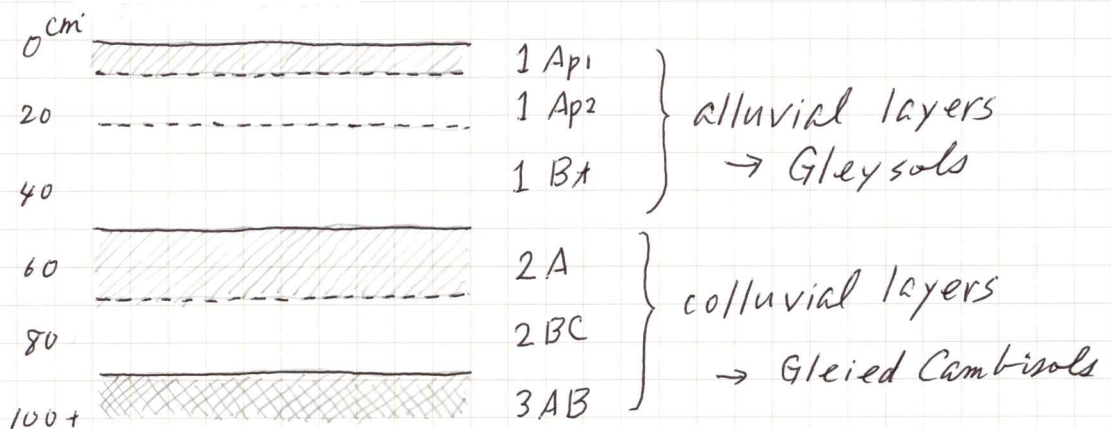 0 cm
20
40
60
80
100+
1 Ap1
1 Ap2
1 Bt
2 A
2 BC
3 AB
alluvial layers
→ Gleysols
colluvial layers
→ Gleied Cambisols